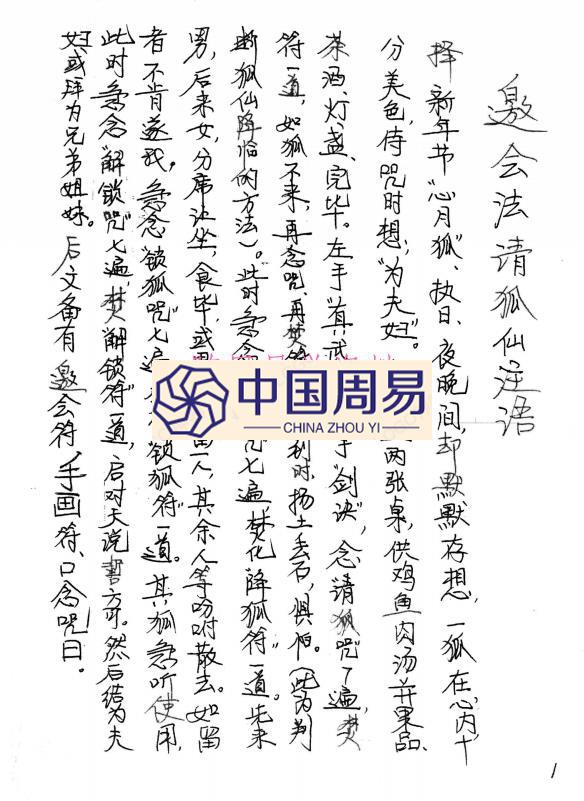 邀会法请狐仙注语
择新年节“心月狐”、执日、夜晚间,却默默存想,一狐在心内,十
分美色,侍咒时想;“为夫妇”。两张桌,供鸡鱼肉汤并果品、
茶酒、灯、盏、完毕。左手“真武 手“剑诀”,念“请狐咒”了遍,焚
符一道,如狐不来,再念咒、再焚符 到时,扬土丢石,惧怕。(此为判
断狐仙降临的方法)。此时急念 咒七遍,焚化“降狐符”一道。先来
男,后来女,分席让坐,食毕,或男 留一人,其余人等吩咐散去。如留
者不肯遂我,急念“锁狐咒”七遍 “锁狐符”一道。其狐急听使用,
此时急念“解锁咒”七遍,焚“解锁符”一道,启对天说誓方可。然后结为夫
妇或拜为兄弟姐妹。后文备有邀会符,手画符、口念咒曰。
中国周易
CHINA ZHOU YI
1